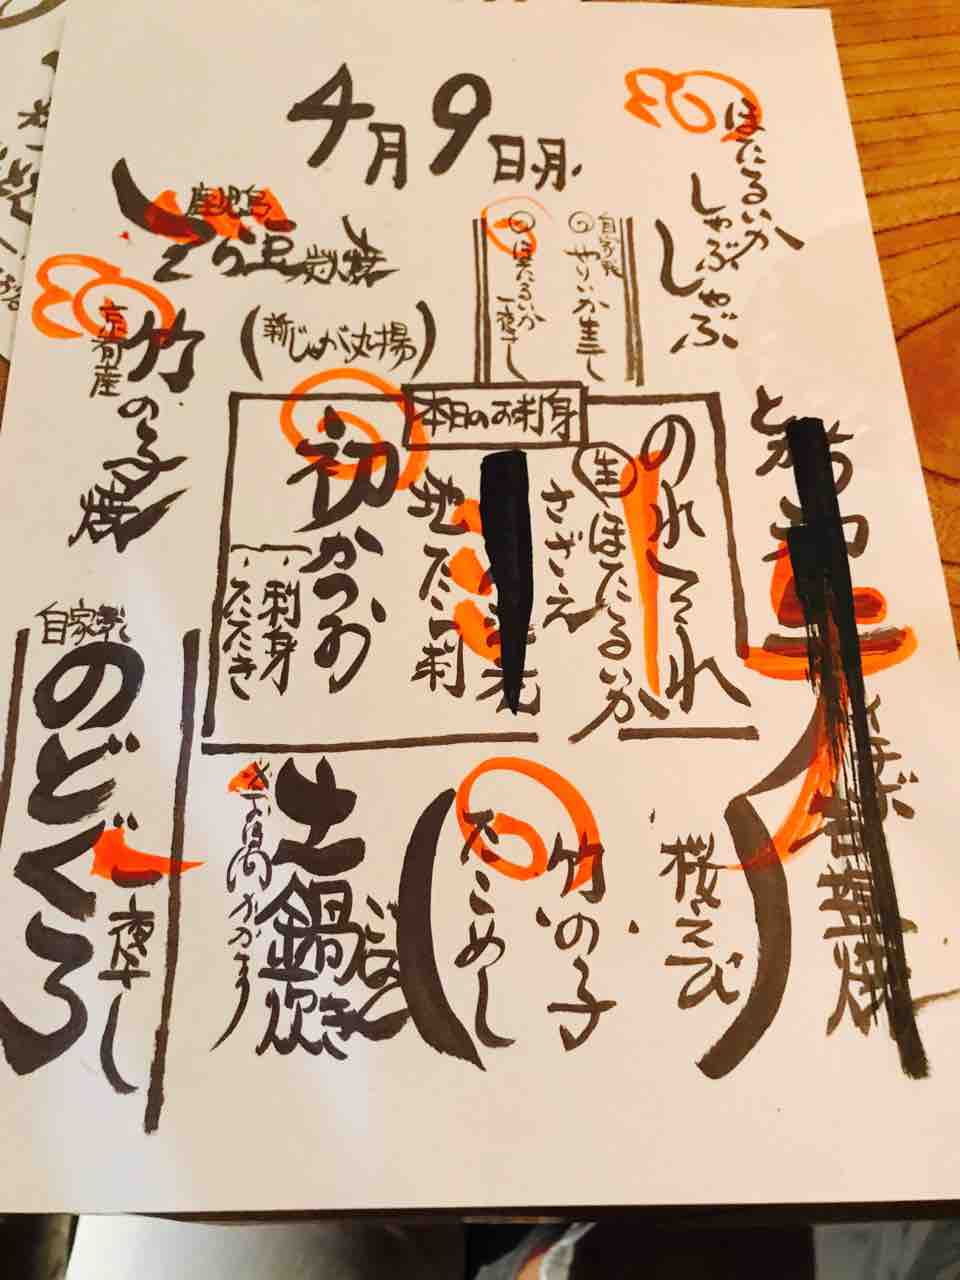 4月9日月
ほたるいか
しゃぶ
しゃぶ
自家製
やりいか生干し
ほたるいか
一夜干し
鹿児島産
そら豆炭火焼
(新じゃが丸揚)
京都産
竹の子焼
本日のお刺身
のれそれ
生ほたるいか
さざえ
地だこ刺
初かつお
刺身
たたき
自家製
のどぐろ
一夜干し
桜えび
竹の子
たこめし
土鍋炊き
ごはん